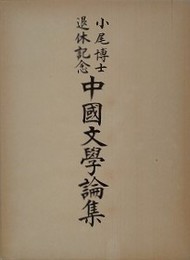 小尾博士
退休記念
中國文學論集